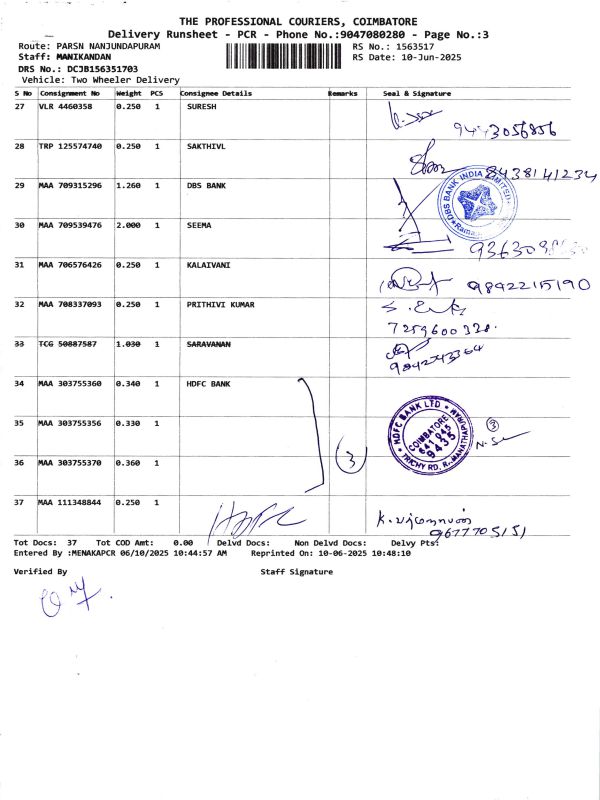 THE PROFESSIONAL COURIERS, COIMBATORE
Delivery Runsheet - PCR - Phone No.:9047080280 - Page No.:3
Route: PARSN NANJUNDAPURAM RS No.: 1563517
Staff: MANIKANDAN RS Date: 10-Jun-2025
DRS No.: DCJB156351703
Vehicle: Two Wheeler Delivery
S No Consignment No Weight PCS Consignee Details Remarks Seal & Signature
27 VLR 4460358 0.250 1 SURESH
9443056856
28 TRP 125574740 0.250 1 SAKTHIVL
8438141234
29 MAA 709315296 1.260 1 DBS BANK
DBS BANK INDIA LIMITED
30 MAA 709539476 2.000 1 SEEMA
31 MAA 706576426 0.250 1 KALAIVANI
9842215190
32 MAA 708337093 0.250 1 PRITHIVI KUMAR
7259600328.
33 TCG 50887587 1.030 1 SARAVANAN
9842743364
34 MAA 303755360 0.340 1 HDFC BANK
HDFC BANK LTD
COIMBATORE
641 045
9435
TRICHY RD, RAMANATHAPURAM
35 MAA 303755356 0.330 1
3
36 MAA 303755370 0.360 1
3
37 MAA 111348844 0.250 1
9677705151
Tot Docs: 37 Tot COD Amt: 0.00 Delvd Docs: Non Delvd Docs: Delvy Pts:
Entered By :MENAKAPCR 06/10/2025 10:44:57 AM Reprinted On: 10-06-2025 10:48:10
Verified By Staff Signature